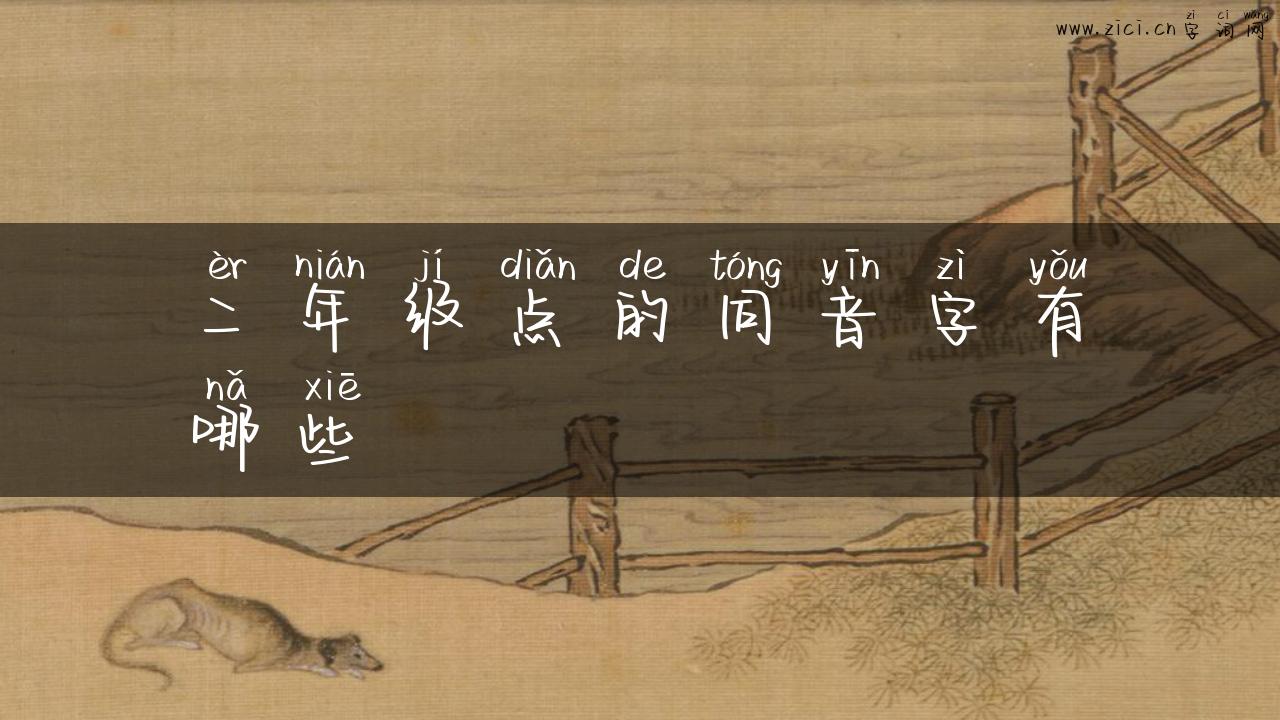 zì cí wǎng
www.zici.cn 字词网
èr nián jí diǎn de tóng yīn zì yǒu
二年级点的同音字有
nǎ xiē
哪些